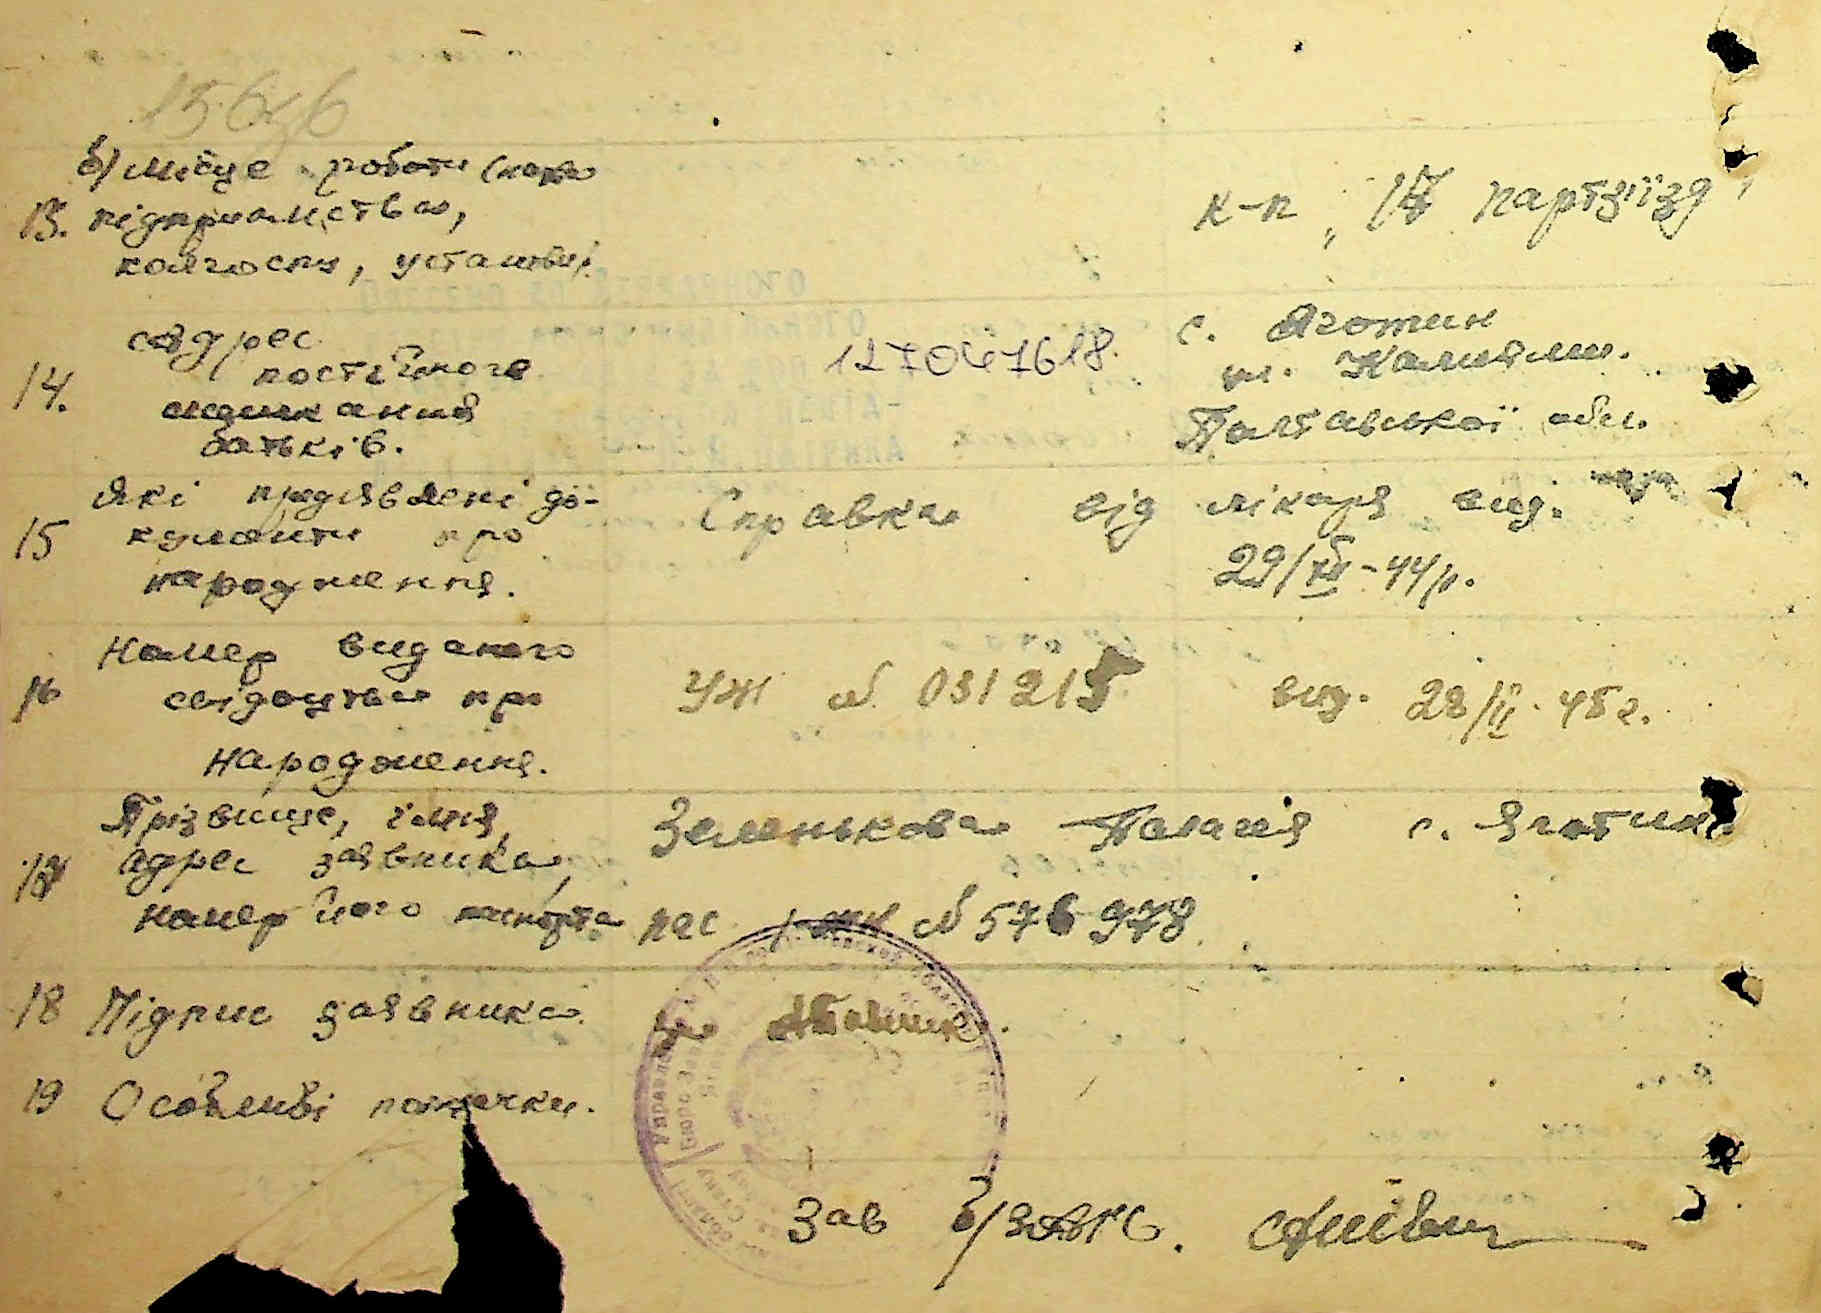 б) місце роботи (назва
13. підприємства,
колгоспу, установи)
к-п "17 партз'їзд"
14. адрес
постійного
мешкання
батьків.
с. Яготин
Полтавської обл.
15 Які пред'явлені до-
кументи про
народження.
Справка від лікаря вид.
29/XII-44р.
16 Номер виданого
свідоцтва про
народження.
УЖ № 031215 вид. 28/II-45г.
17 Прізвище, ім'я,
адрес заявника,
номер його паспорта
Зеленькова Палагія с. Яготин
пас № 576978
18 Підпис заявника.
за
19 Особливі помітки.
Зав б/загс.